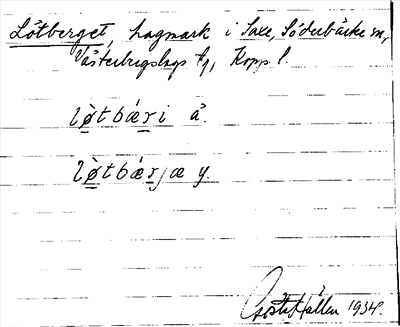 Lötberget, hagmark i Saxe, Söderbärke sn,
Västerbergslags tg, Kopp l.
lø̀tbǽri å.
lø̀tbǽrjæ y.
Gösta Hallén 1934.